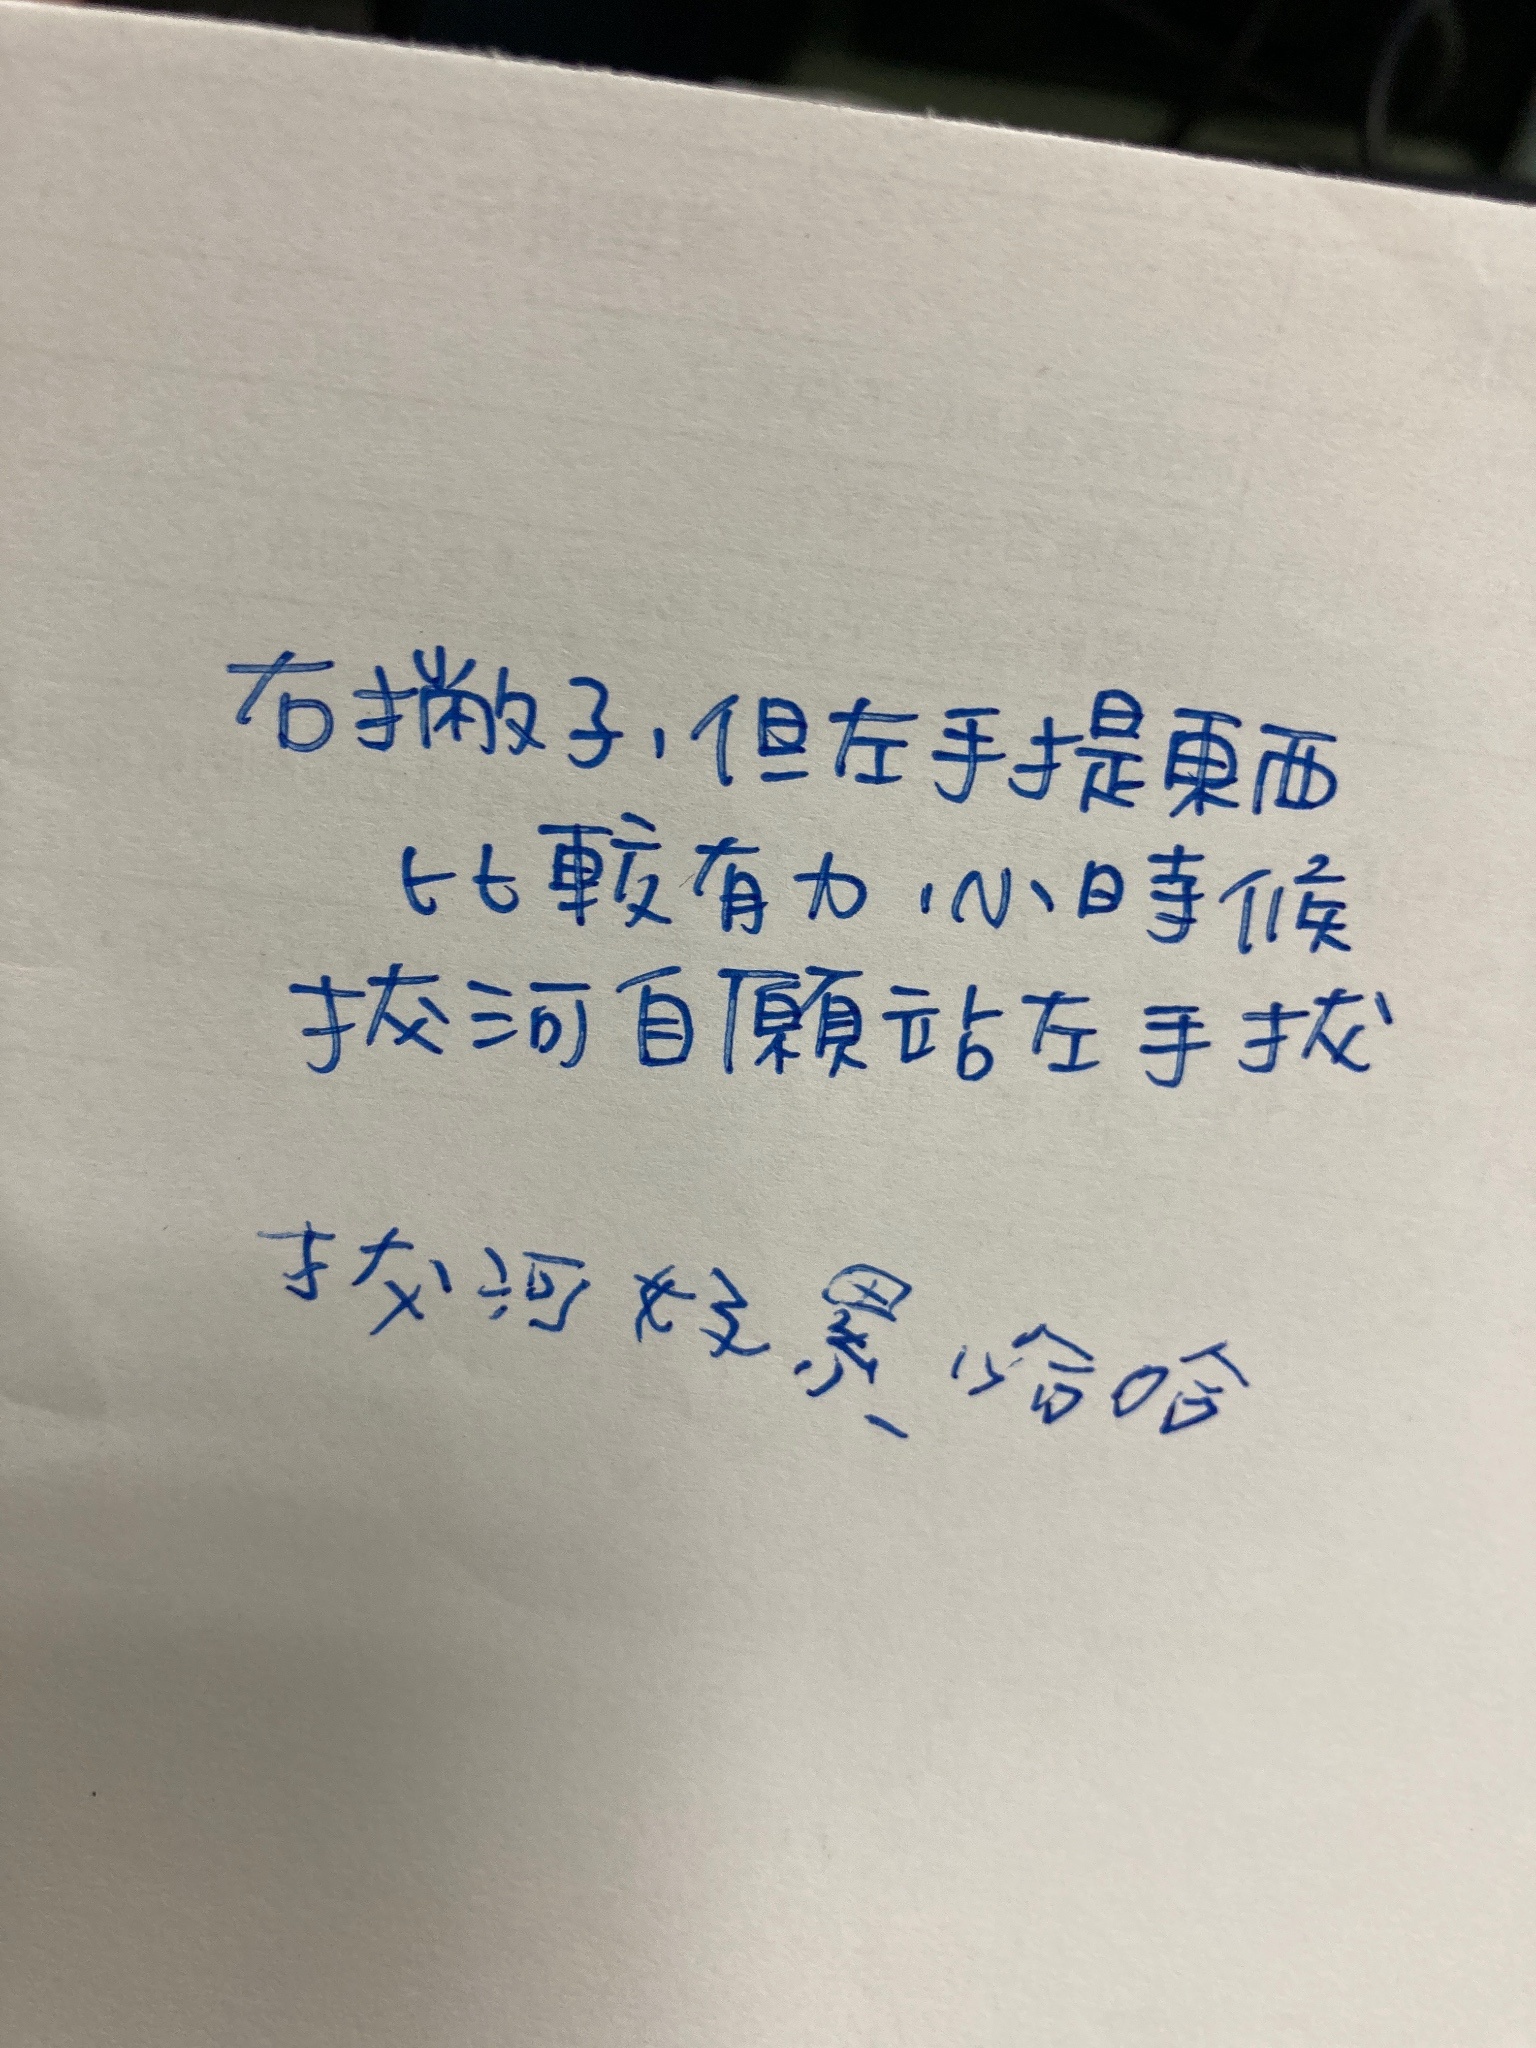 右撇子,但左手提東西
比較有力,小時候
拔河自願站左手拔
拔河好累、哈哈